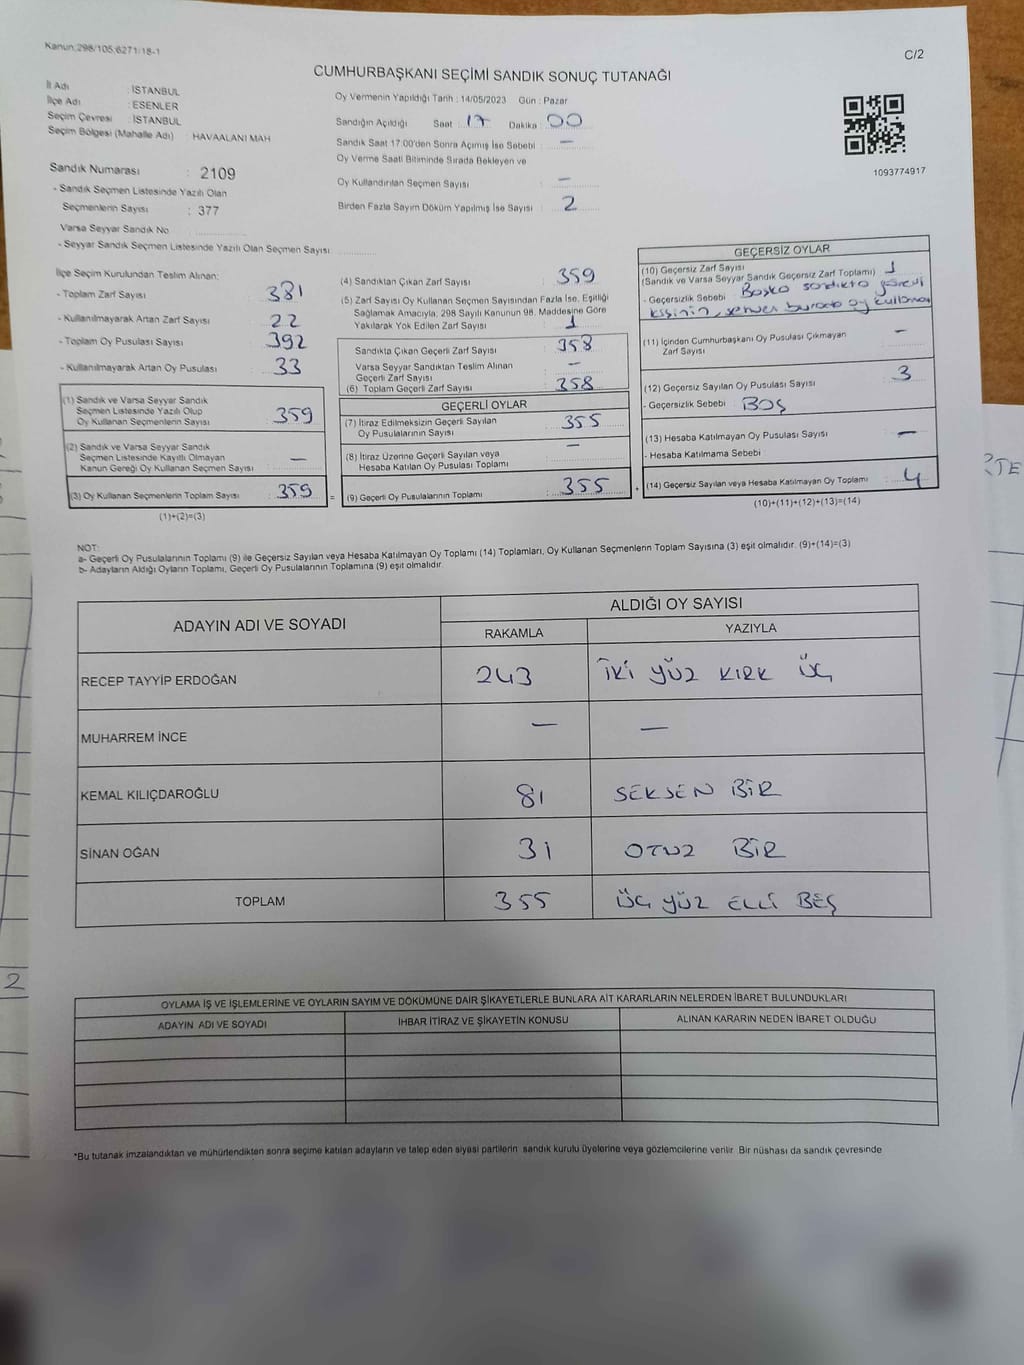 Kanun:298/105;6271/18-1
C/2
CUMHURBAŞKANI SEÇİMİ SANDIK SONUÇ TUTANAĞI
İl Adı : İSTANBUL
İlçe Adı : ESENLER
Seçim Çevresi : İSTANBUL
Seçim Bölgesi (Mahalle Adı) : HAVAALANI MAH
Sandık Numarası : 2109
- Sandık Seçmen Listesinde Yazılı Olan
Seçmenlerin Sayısı : 377
Varsa Seyyar Sandık No
- Seyyar Sandık Seçmen Listesinde Yazılı Olan Seçmen Sayısı
Oy Vermenin Yapıldığı Tarih : 14/05/2023 Gün : Pazar
Sandığın Açıldığı Saat : 17 Dakika : 00
Sandık Saat 17:00'den Sonra Açılmış İse Sebebi : —
Oy Verme Saati Bitiminde Sırada Bekleyen ve
Oy Kullandırılan Seçmen Sayısı : —
Birden Fazla Sayım Döküm Yapılmış İse Sayısı : 2
1093774917
İlçe Seçim Kurulundan Teslim Alınan:
- Toplam Zarf Sayısı : 381
- Kullanılmayarak Artan Zarf Sayısı : 22
- Toplam Oy Pusulası Sayısı : 392
- Kullanılmayarak Artan Oy Pusulası : 33
(1) Sandık ve Varsa Seyyar Sandık
Seçmen Listesinde Yazılı Olup
Oy Kullanan Seçmenlerin Sayısı : 359
(2) Sandık ve Varsa Seyyar Sandık
Seçmen Listesinde Kayıtlı Olmayan
Kanun Gereği Oy Kullanan Seçmen Sayısı : —
(3) Oy Kullanan Seçmenlerin Toplam Sayısı : 359
(1)+(2)=(3)
(4) Sandıktan Çıkan Zarf Sayısı : 359
(5) Zarf Sayısı Oy Kullanan Seçmen Sayısından Fazla İse, Eşitliği
Sağlamak Amacıyla, 298 Sayılı Kanunun 98. Maddesine Göre
Yakılarak Yok Edilen Zarf Sayısı : 1
Sandıkta Çıkan Geçerli Zarf Sayısı : 358
Varsa Seyyar Sandıktan Teslim Alınan
Geçerli Zarf Sayısı : —
(6) Toplam Geçerli Zarf Sayısı : 358
GEÇERLİ OYLAR
(7) İtiraz Edilmeksizin Geçerli Sayılan
Oy Pusulalarının Sayısı : 355
(8) İtiraz Üzerine Geçerli Sayılan veya
Hesaba Katılan Oy Pusulası Toplamı : —
= (9) Geçerli Oy Pusulalarının Toplamı : 355
GEÇERSİZ OYLAR
(10) Geçersiz Zarf Sayısı
(Sandık ve Varsa Seyyar Sandık Geçersiz Zarf Toplamı) : 1
- Geçersizlik Sebebi : Başka sandıkta görevli
kişinin, sehven burada oy kullanması
(11) İçinden Cumhurbaşkanı Oy Pusulası Çıkmayan
Zarf Sayısı : —
(12) Geçersiz Sayılan Oy Pusulası Sayısı : 3
- Geçersizlik Sebebi : BOŞ
(13) Hesaba Katılmayan Oy Pusulası Sayısı : —
- Hesaba Katılmama Sebebi :
+ (14) Geçersiz Sayılan veya Hesaba Katılmayan Oy Toplamı : 4
(10)+(11)+(12)+(13)=(14)
NOT:
a- Geçerli Oy Pusulalarının Toplamı (9) ile Geçersiz Sayılan veya Hesaba Katılmayan Oy Toplamı (14) Toplamları, Oy Kullanan Seçmenlerin Toplam Sayısına (3) eşit olmalıdır. (9)+(14)=(3)
b- Adayların Aldığı Oyların Toplamı, Geçerli Oy Pusulalarının Toplamına (9) eşit olmalıdır.
ADAYIN ADI VE SOYADI ALDIĞI OY SAYISI
RAKAMLA YAZIYLA
RECEP TAYYİP ERDOĞAN 243 İKİ YÜZ KIRK ÜÇ
MUHARREM İNCE — —
KEMAL KILIÇDAROĞLU 81 SEKSEN BİR
SİNAN OĞAN 31 OTUZ BİR
TOPLAM 355 ÜÇ YÜZ ELLİ BEŞ
OYLAMA İŞ VE İŞLEMLERİNE VE OYLARIN SAYIM VE DÖKÜMÜNE DAİR ŞİKAYETLERLE BUNLARA AİT KARARLARIN NELERDEN İBARET BULUNDUKLARI
ADAYIN ADI VE SOYADI İHBAR İTİRAZ VE ŞİKAYETİN KONUSU ALINAN KARARIN NEDEN İBARET OLDUĞU
*Bu tutanak imzalandıktan ve mühürlendikten sonra seçime katılan adayların ve talep eden siyasi partilerin sandık kurulu üyelerine veya gözlemcilerine verilir. Bir nüshası da sandık çevresinde
2